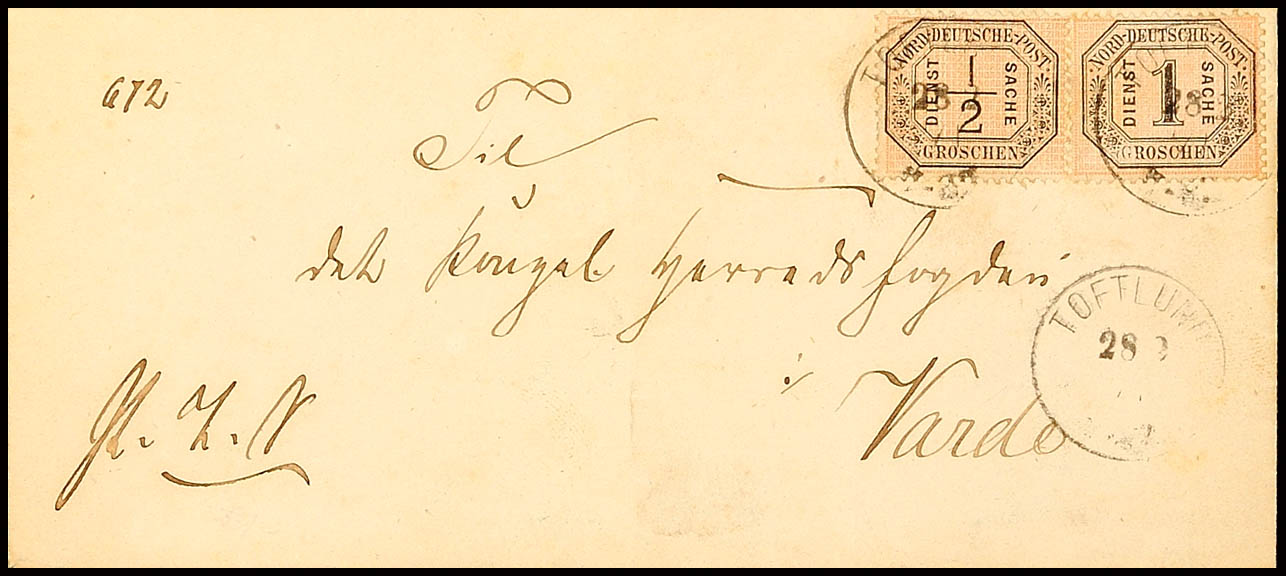 672
NORD-DEUTSCHE-POST
DIENST 1/2 SACHE
GROSCHEN
NORD-DEUTSCHE-POST
DIENST 1 SACHE
GROSCHEN
28
28
Til
det Kongel. Herredsfogderi
i
Varde
TOFTLUND
28 3